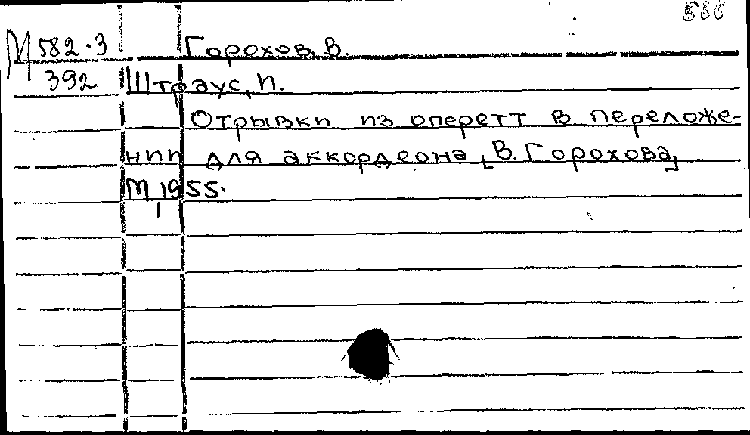 586
М 582-3 Горохов, В.
392 Штраус, И.
Отрывки из оперетт в переложе-
нии для аккордеона [В. Горохова]
М 1955.
1